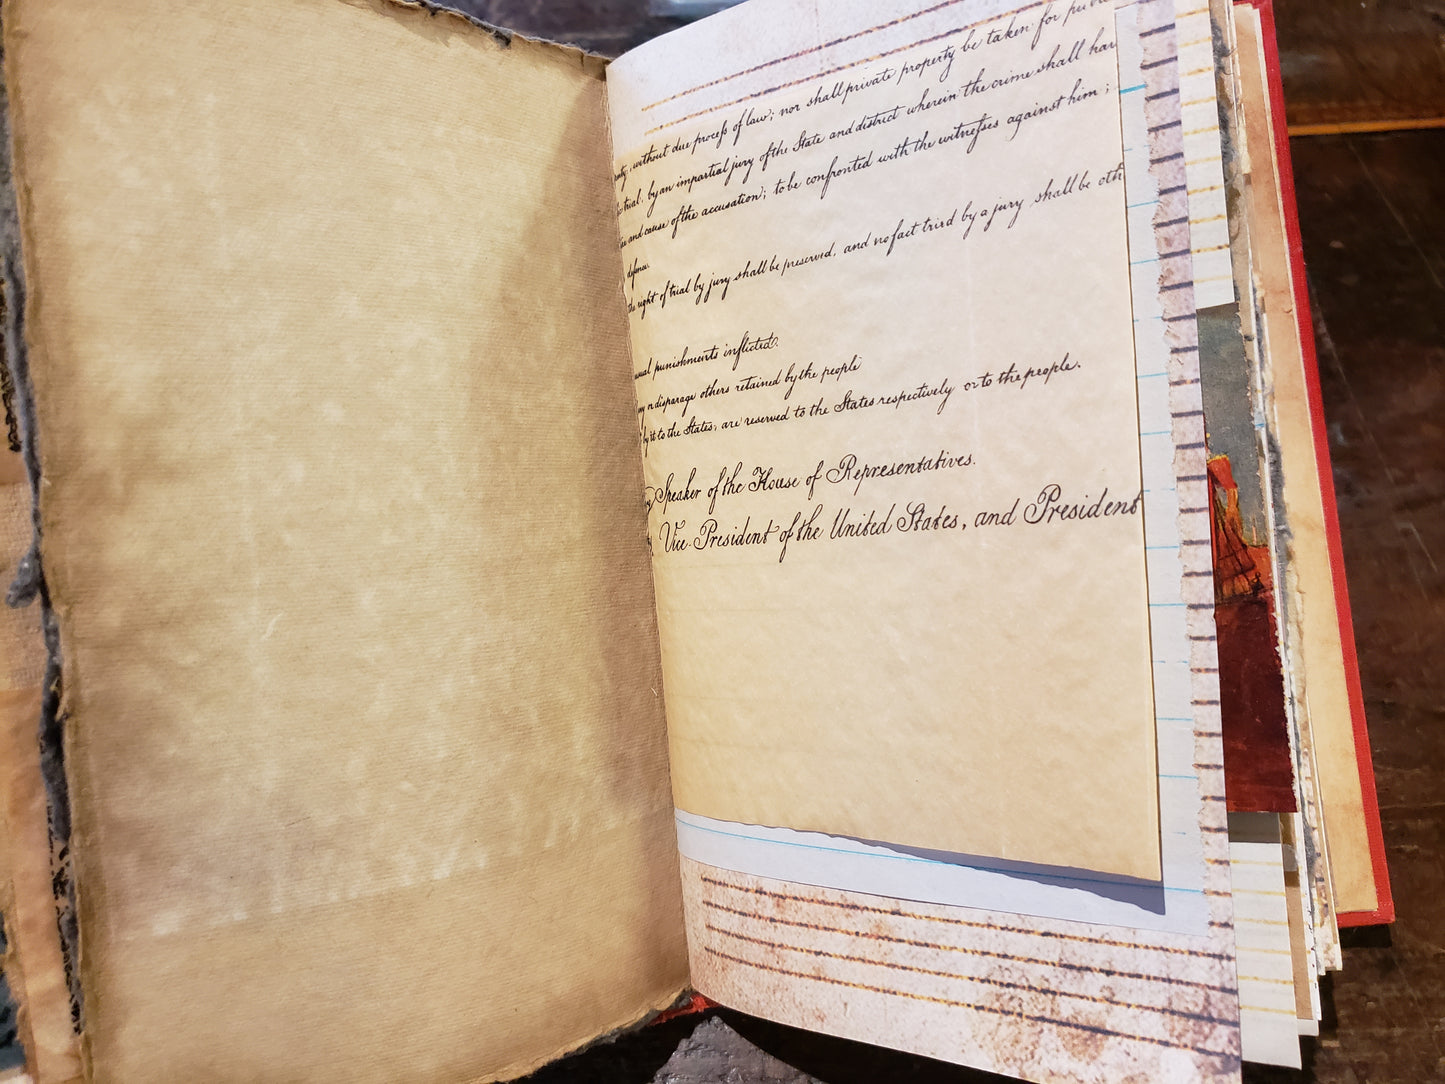 without due process of law; nor shall private property be taken for
trial, by an impartial jury of the State and district wherein the crime shall hav
and cause of the accusation; to be confronted with the witnesses against him;
defence.
the right of trial by jury shall be preserved, and no fact tried by a jury shall be oth
usual punishments inflicted.
or disparage others retained by the people
by it to the States, are reserved to the States respectively or to the people.
Speaker of the House of Representatives.
Vice-President of the United States, and President